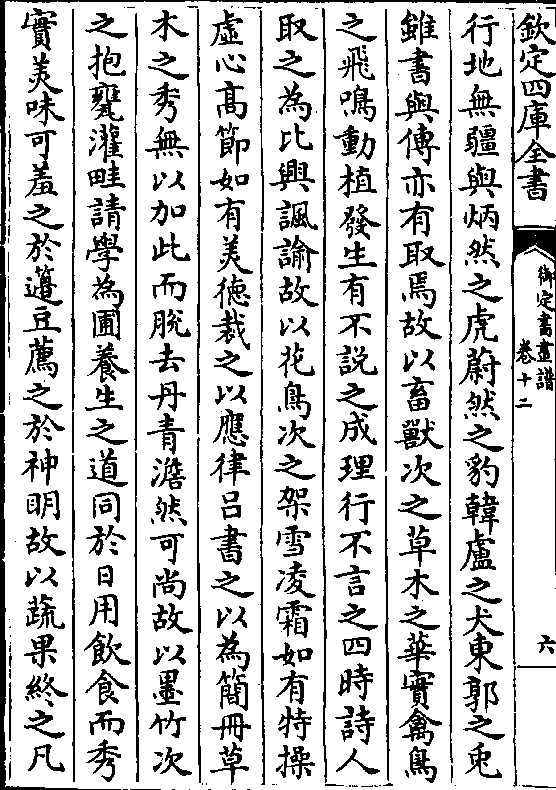 欽定四庫全書
御定書畫譜
卷十二
六
行地無疆與炳然之虎蔚然之豹韓盧之犬東郭之兎
雖書與傳亦有取焉故以畜獸次之草木之華實禽鳥
之飛鳴動植發生有不説之成理行不言之四時詩人
取之為比興諷諭故以花鳥次之架雪凌霜如有特操
虛心髙節如有美德裁之以應律呂書之以為簡冊草
木之秀無以加此而脫去丹青澹然可尚故以墨竹次
之抱甕灌畦請學為圃養生之道同於日用飲食而秀
實美味可羞之於籩豆薦之於神明故以蔬果終之凡